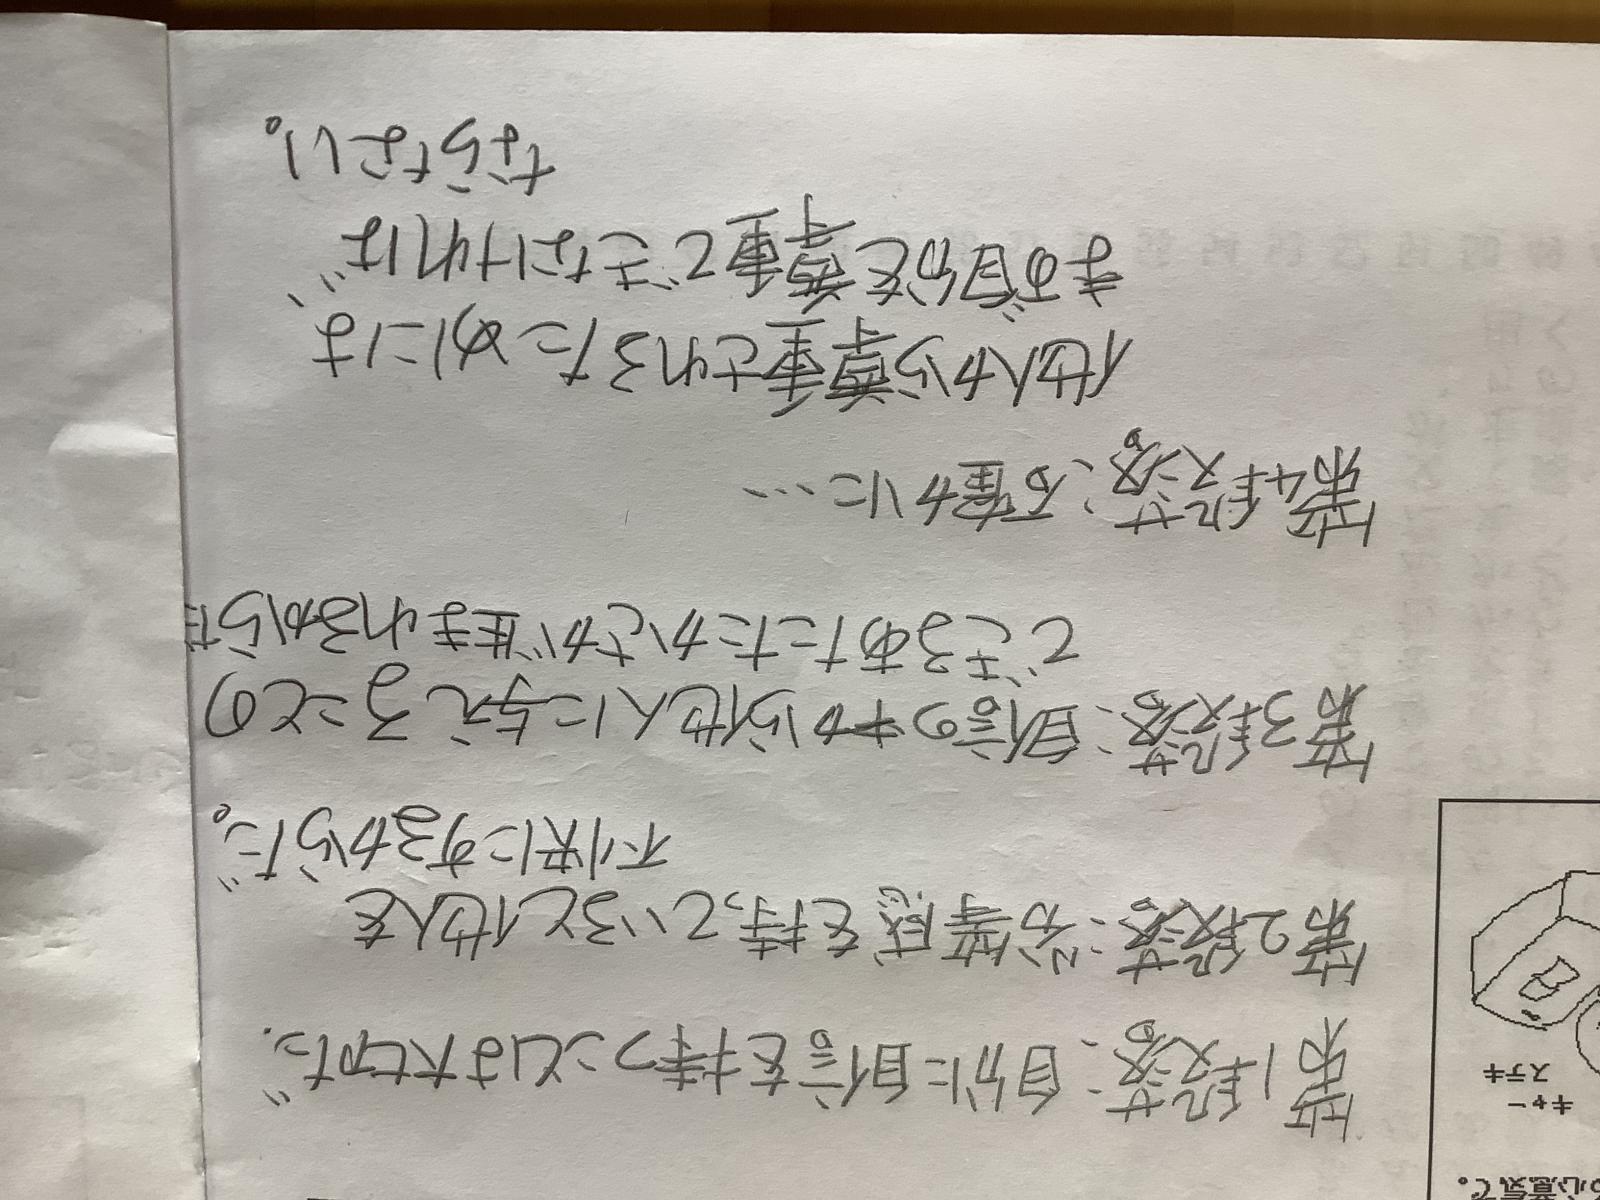 の心意気で。
キャー
ステキ
第1段落:自分に自信を持つことは大切だ.
第2段落:劣等感を持っていると他人を
不快にするからだ。
第3段落:自信の中から他人に与えることの
できるあたたかさが生まれるからだ
第4段落:確かに…
他人から尊重されるためには
まず自分を尊重できなければ
ならない。